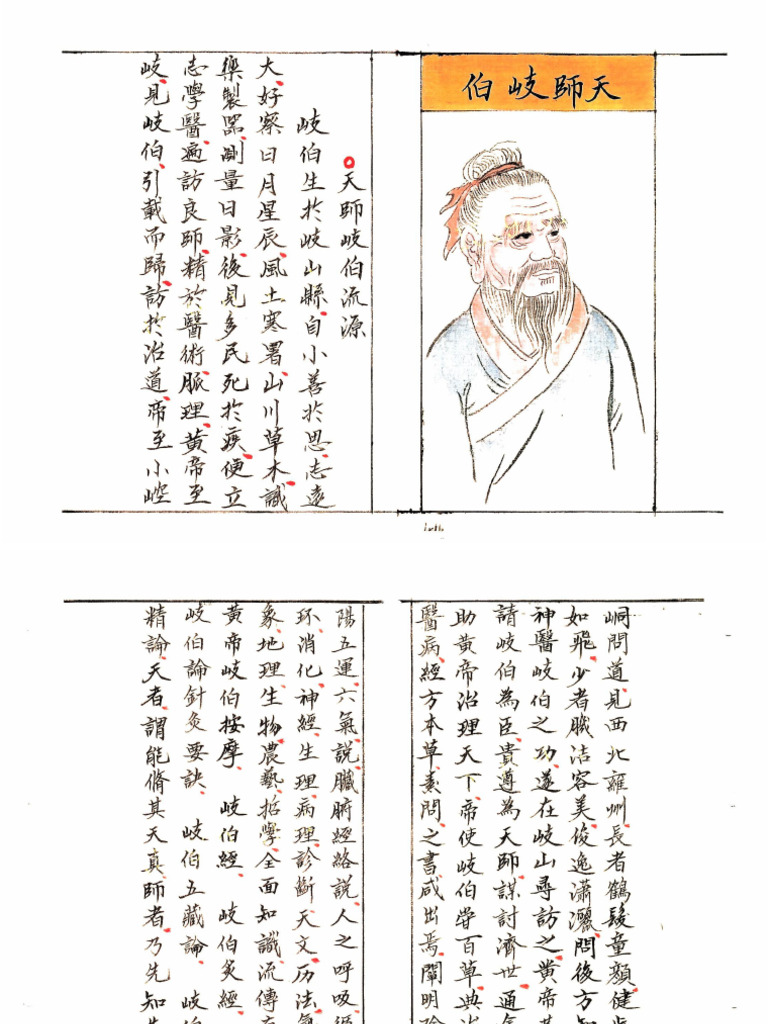 天師岐伯
天師岐伯流源
岐伯生於岐山縣自小善於思志遠
大好察日月星辰風土寒署山川草木識
樂製器測量日影後見多民死於疾便立
志學醫遍訪良師精於醫術脈理黃帝至
岐見岐伯引載而歸訪於治道帝至小崆
峒問道見西北雍州長者鶴髮童顏健
如飛少者洁容美俊逸瀟灑問後方知
神醫岐伯之功遂在岐山尋訪之黃帝
請岐伯為臣貴尊為天師謀討濟世通
助黃帝治理天下帝使岐伯嘗百草典
醫病經方本草素問之書咸出焉闡明
陽五運六氣說臟腑經絡說人之呼吸
环消化神經生理病理診斷天文历法
象地理生物農藝哲學全面知識流傳
黃帝岐伯按摩 岐伯經 岐伯灸經
岐伯論針灸要訣 岐伯五藏論 岐
精論天者謂能脩其天真師者乃先知